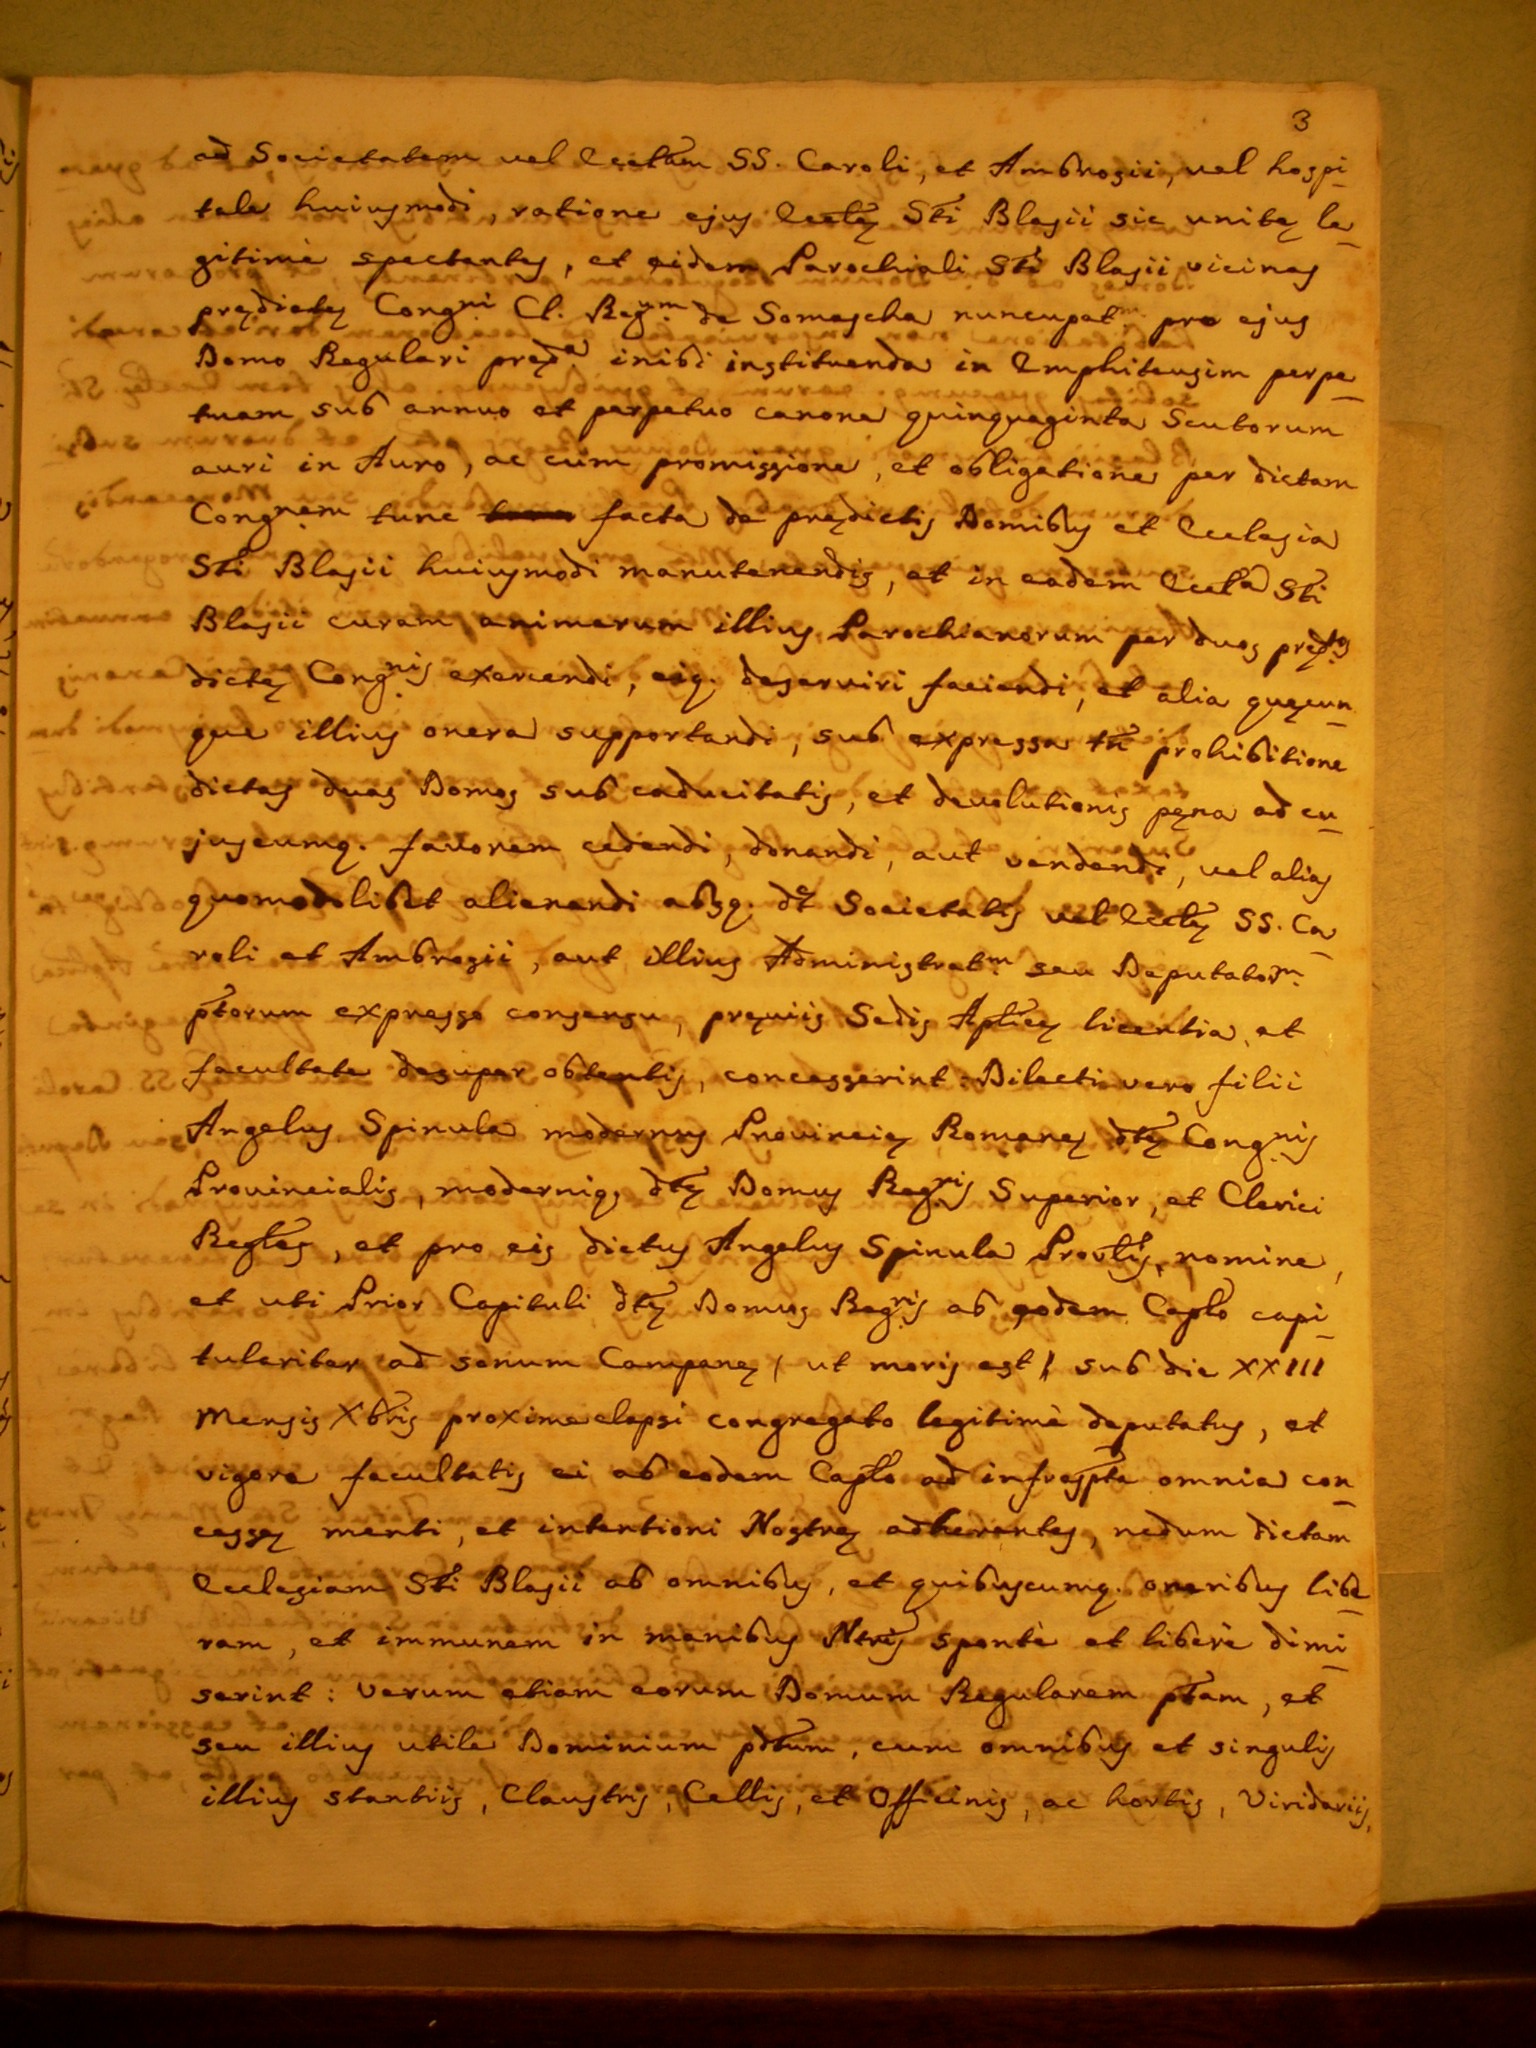 3
ad Societatem vel Eccl̃am SS. Caroli, et Ambrosii, vel hospi-
tale huiusmodi, ratione ejus Eccl̃ę Sti Blasii sic unitę le-
gitimè spectantes, et eidem Parochiali Sti Blasii vicinas
prędictę Congni Cl. Regum de Somascha nuncupatm pro ejus
Domo Regulari pręda inibi instituenda in Emphiteusim perpe-
tuam sub annuo et perpetuo canone quinquaginta Scutorum
auri in Auro, ac cum promissione, et obligatione per dictam
Congnem tunc facta de prędictis Domibus et Ecclesia
Sti Blasii huiusmodi manutenendis, et in eadem Eccla Sti
Blasii curam animarum illius Parochianorum per duos prętos
dictę Congnis exercendi, eiq. deserviri faciendi, et alia quęcun-
que illius onera supportandi, sub expressa tñ prohibitione
dictas duas Domos sub caducitatis, et devolutionis pęna ad cu-
juscumq. favorem cedendi, donandi, aut vendendi, vel alias
quomodolibet alienandi absq. de Societatis vel Ecclę SS. Ca
roli et Ambrosii, aut illius Administratm seu Deputatorm
ptorum expresso consensu, pręviis Sedis Apłicę licentia, et
facultate desuper obtentis, concesserint: Dilecti vero filii
Angelus Spinula modernus Provincię Romanę dtę Congnis
Provincialis, modernisq, dtę Domus Regris Superior, et Clerici
Regłes, et pro eis dictus Angelus Spinula Provłis, nomine,
et uti Prior Capituli dtę Domus Regris ab eodem Capło capi-
tulariter ad sonum Campanę ( ut moris est ) sub die XXIII
Mensis Xbris proxime elapsi congregato legitimè deputatus, et
vigore facultatis ei ab eodem Capło ad infraspta omnia con-
cessę menti, et intentioni Nostrę adherentes, nedum dictam
Ecclesiam Sti Blasii ab omnibus, et quibuscumq. oneribus libe-
ram, et immunem in manibus Ntris spontè et liberè dimi-
serint: Verum etiam eorum Domum Regularem ptam, et
seu illius utile Dominium pdtum, cum omnibus et singulis
illius stantiis, Claustris, Cellis, et Officinis, ac hortis, Viridariis,